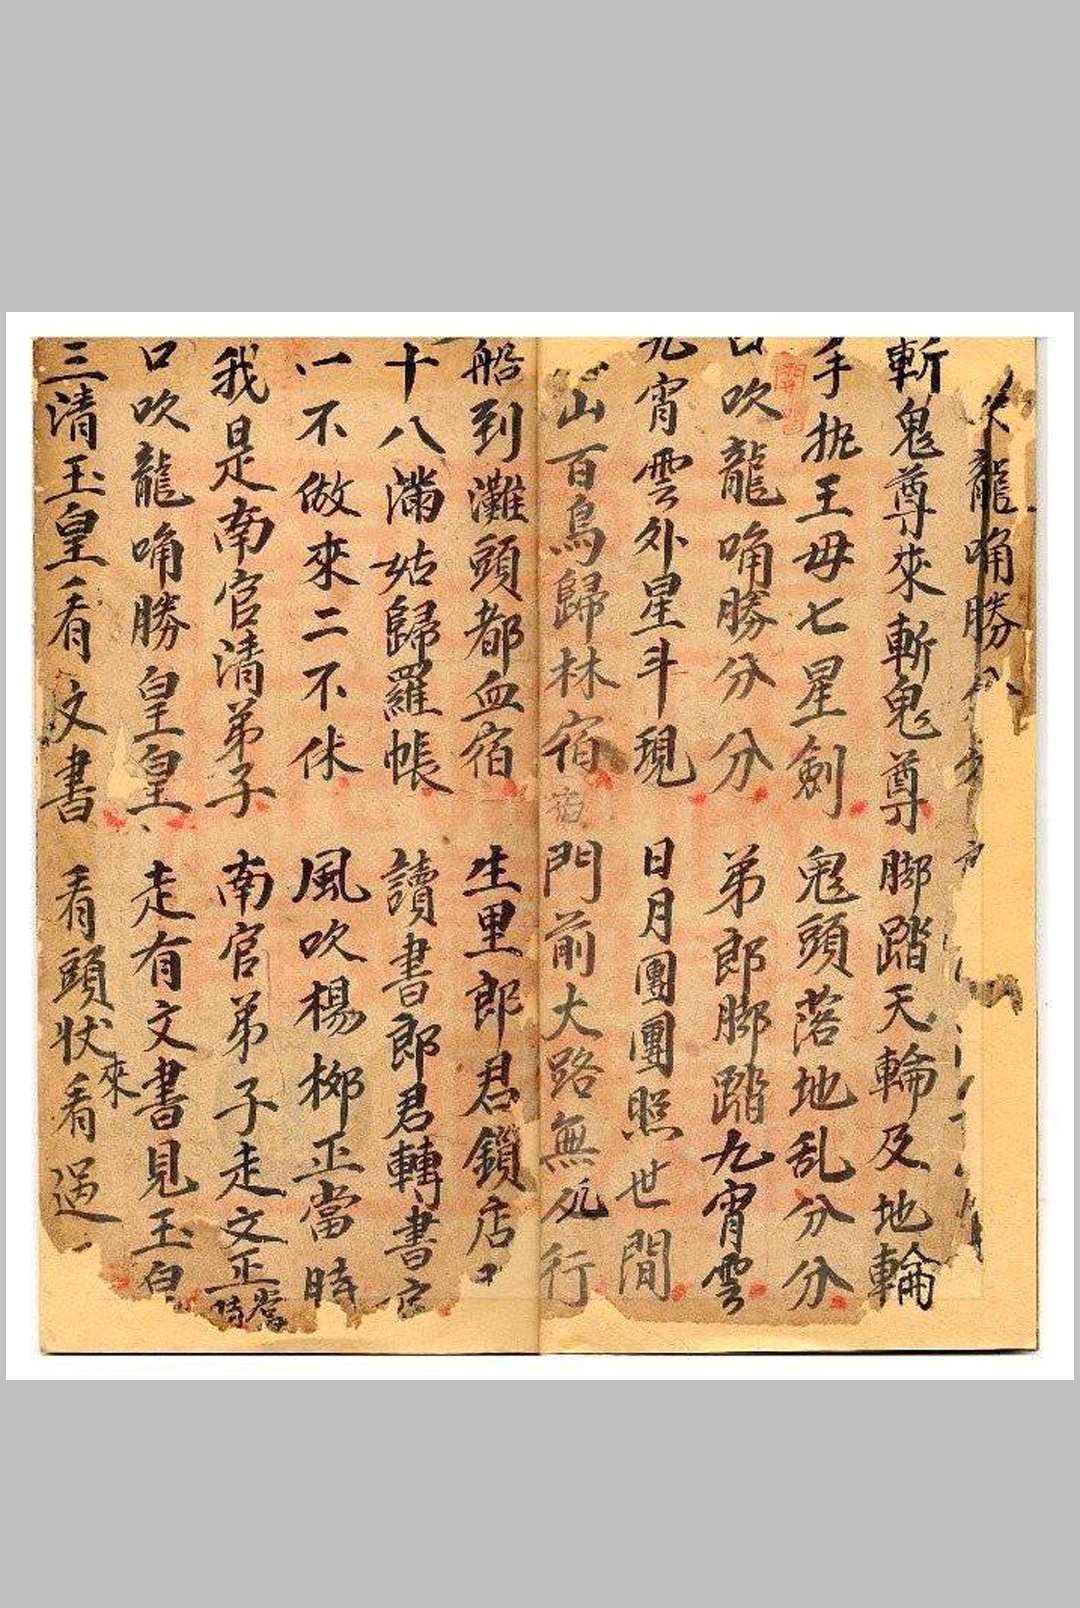 龍啼勝
斬鬼尊來斬鬼尊 脚踏天輪及地輪
手执王母七星劍 鬼頭落地乱分分
口吹龍啼勝分分 弟郎脚踏九宵雲
九宵雲外星斗現 日月團團照世間
山百鳥歸林宿 門前大路無人行
船到灘頭都血宿 生里郎君鎖店
十八滿姑歸羅帳 讀書郎君轉書
一不做來二不休 風吹楊柳正當時
我是南官清弟子 南官弟子走文正當時
口吹龍啼勝皇皇 走有文書見玉皇
三清玉皇看文書 看頭狀來看過